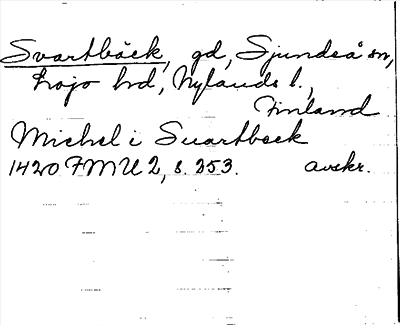 Svartbäck, gd, Sjundeå sn,
Lojo hrd, Nylands l.,
Finland
Michel i Suartbeck
1420 FMU 2, s. 253. avskr.